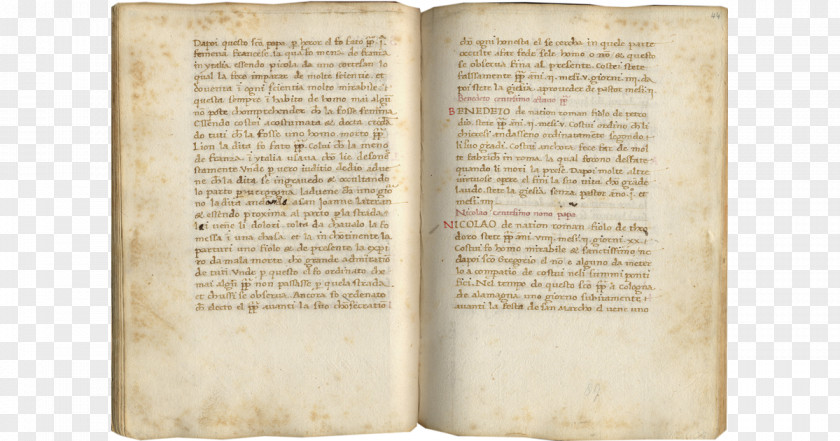 Dapoi questo sco papa p heror el fo fato pp. i.
femena francese. la qual o menà de franza
in ytalia essendo picola da uno cortesan lo
qual la fixe imparar de molte scientie et
doventa i ogni scientia molto mirabile et
questa sempre i habito de homo mai algu
no pote chomprehender ch la fosse femina
Essendo costei acostumata et decta creta
da tuti ch la fosse uno homo morto pp
Lion la dita fo fato pp. Costui ch la meno
de franza i ytalia usava ch lie deson
stamente Unde p vero iuditio dedio adue
ne ch la dita se ingravedo et ocultando
lo parto p vergogna laduene ch uno gio
no la dita andando a san Joanne latteran
et essendo proxima al parto p la strada
lei vene li dolori tolta da chavalo la fo
messa i una chasa et in chotinente la
parturi uno fiolo et de presente la expi
ro da mala morte cho grande admiratio
de tuti Unde p questo el fo ordinato che
mai algu pp non passasse p quela strada
et chussi se observa Ancora fo ordenato
ch electo el pp avanti la sua chosecratio
cho ogni honesta el se cercha in quele parte
occulte afar fede selo homo o no et questo
se observa fina al presente. Costei stete
falssamente pp. ani. ij. mesi. v. giorni. iiij. da
poi stete la giesia apreveder de pastor mesi. ij.
Beneto centesimo octavo pp
BENEDETO de nation roman fiolo de petro
stete pp. ani. ij. mesi. v. Costui ordino ch li
chieresi andasseno ordinatamente segondo
li suo gradi. Costui anchora fece far de mol
te fabrich in roma. la qual sirono desfate
quando li mori la prese. Dapoi molte altre
virtuose opere el fini la suo vita cho grade
laude. stete la giesia senza pastor ani. j. et
mesi.
Nicolao centesimo nono papa
NICOLAO de nation roman fiolo de theo
doro stete pp. ani. viij. mesi. ij. giorni. xx.
Costui fo homo mirabile et sanctissimo ne
dapoi sco Gregorio el no e alguno da meter
lo a compatio de costui neli summi ponti
fici. Nel tempo de questo sco pp a cologna
de alamagna uno giorno subitamente
avanti la festa de san Marcho el vene uno